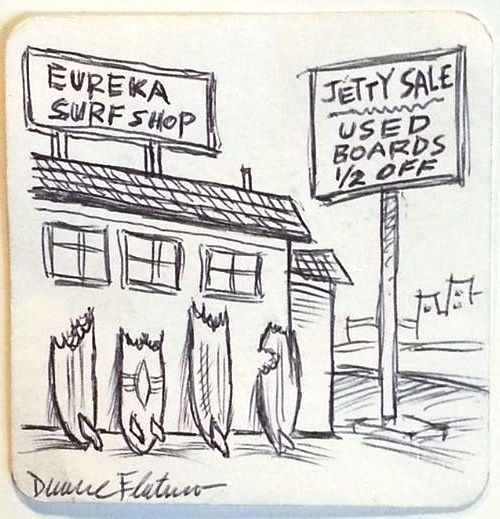 EUREKA
SURF SHOP
JETTY SALE
USED
BOARDS
1/2 OFF
Duane Flatmo